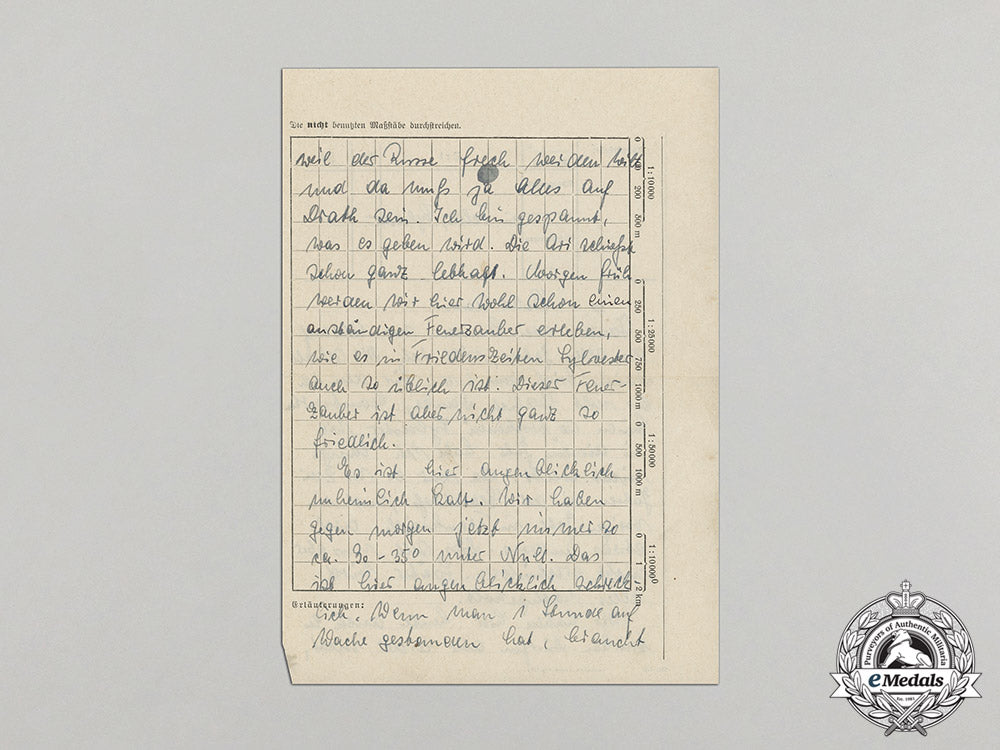 Die nicht benutzten Maßstäbe durchstreichen.
weil der Russe frech werden will
und da muß ja alles auf
Drath sein. Ich bin gespannt,
was es geben wird. Die Ari schießt
schon ganz lebhaft. Morgen früh
werden wir hier wohl schon einen
anständigen Feuerzauber erleben,
wie es in Friedenszeiten Sylvester
auch so üblich ist. Dieser Feuer-
zauber ist aber nicht ganz so
friedlich.
Es ist hier augenblicklich
unheimlich kalt. Wir haben
gegen morgen jetzt immer so
ca. 30-35° unter Null. Das
ist hier augenblicklich schreck
Erläuterungen:
lich. Wenn man 1 Stunde auf
Wache gestanden hat, braucht
0 100 200 500 m
1:10000
0 250 500 750 1000 m
1:25000
0 500 1000 m
1:50000
0 1 2 km
1:100000
Purveyors of Authentic Militaria
eMedals
Est. 1985